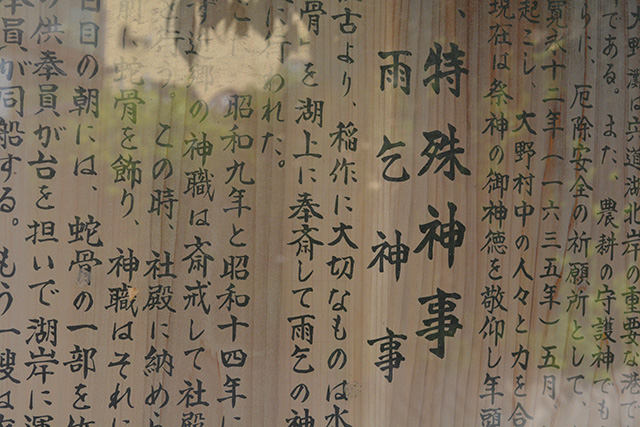 大野灘は宍道湖北岸の重要な港で
である。また、農耕の守護神でも
りに、厄除安全の祈願所として、
寛永十二年(一六三五年)五月
起こし、大野村中の人々と力を合
現在は祭神の御神徳を敬仰し年頭
特殊神事
雨乞神事
古より、稲作に大切なものは水
骨」を湖上に奉斎して雨乞の神
に行われた。
昭和九年と昭和十四年に
の神職は斎戒して社殿
う。この時、社殿に納めら
に蛇骨を飾り、神職はそれに
日目の朝には、蛇骨の一部を
の供奉員が台を担いで湖岸に運
奉員が同船する。もう一艘は